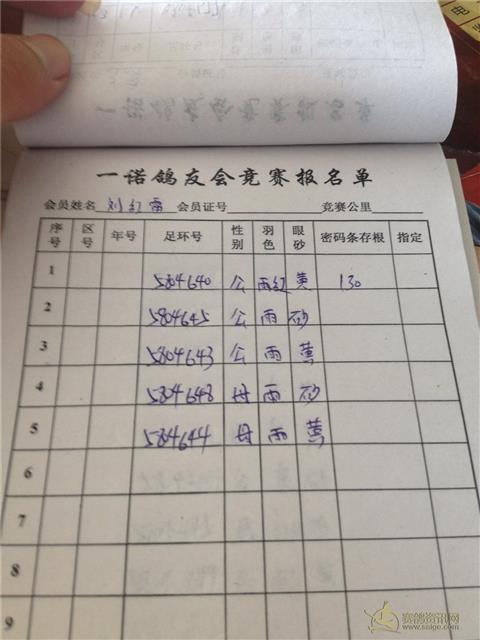 一诺鸽友会竞赛报名单
会员姓名 刘红雷 会员证号 竞赛公里
序号 区号 年号 足环号 性别 羽色 眼砂 密码条存根 指定
1 5804640 公 雨红 黄 130
2 5804645 公 雨 砂
3 5804643 公 雨 黄
4 5804648 母 雨 砂
5 5804644 母 雨 黄
6
7
8
9
赛鸽资讯网
www.saige.com